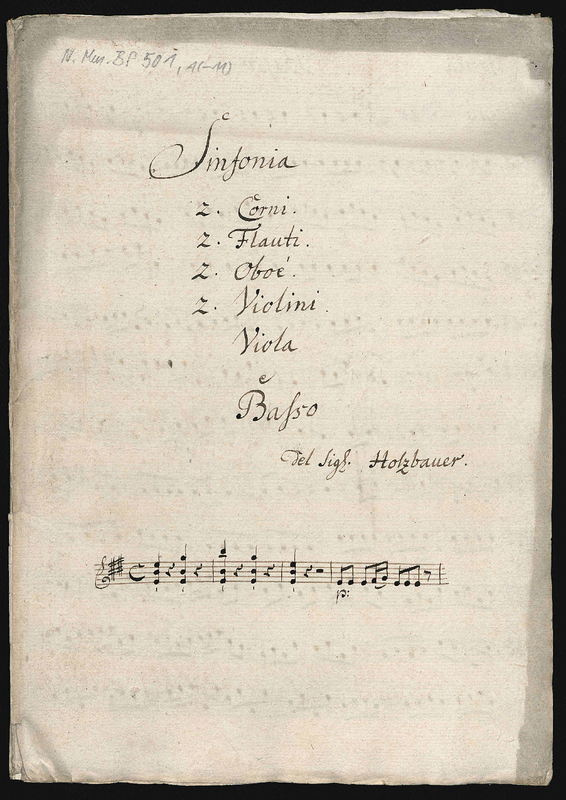 N. Mus. BP 501, 1(-11)
Sinfonia
2. Corni.
2. Flauti.
2. Oboé.
2. Violini.
Viola
e
Baſso
Del Sigh. Holzbauer.
p: